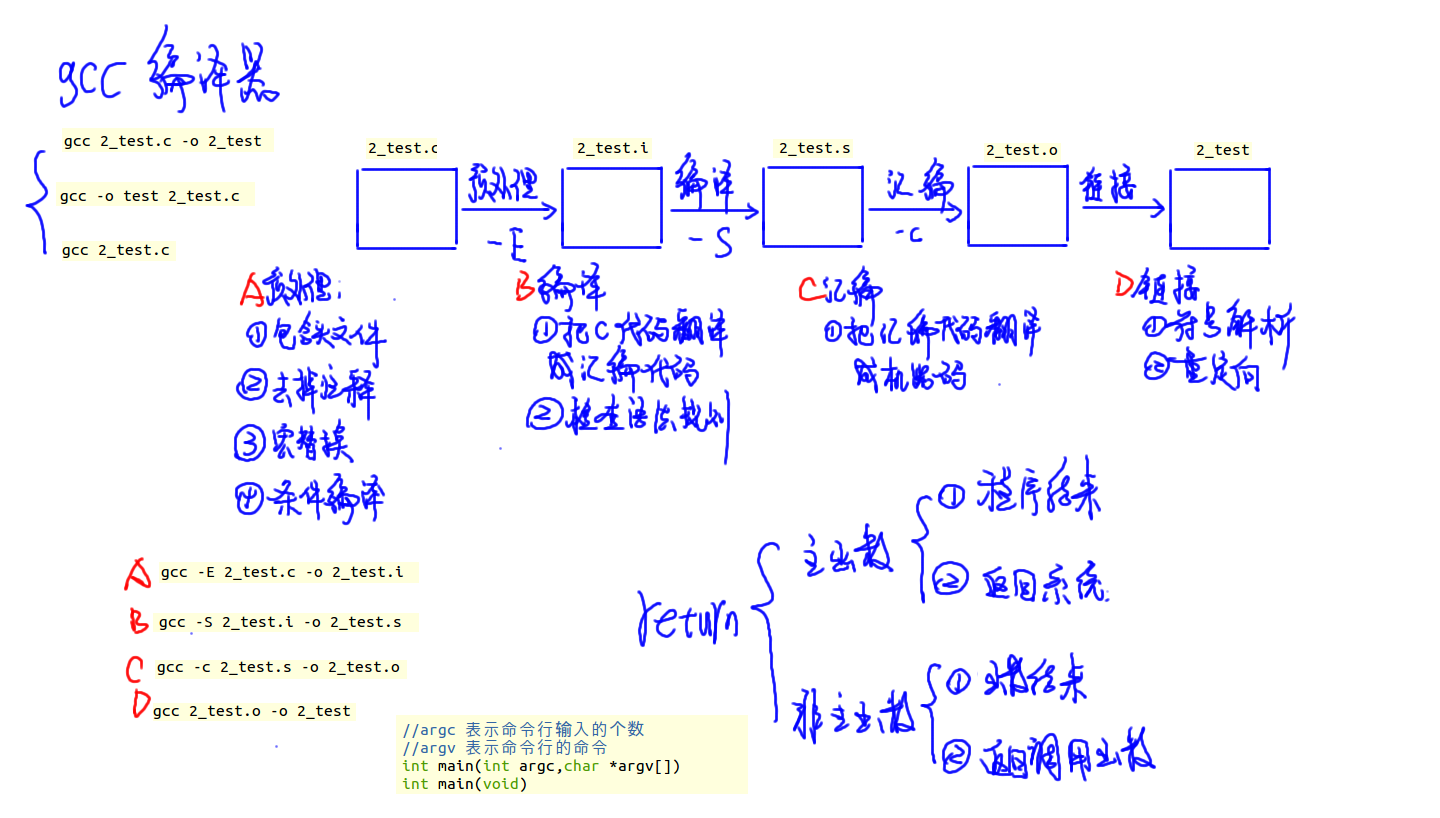 gcc 编译器
gcc 2_test.c -o 2_test
gcc -o test 2_test.c
gcc 2_test.c
2_test.c
2_test.i
2_test.s
2_test.o
2_test
预处理
-E
编译
-S
汇编
-c
链接
A预处理:
①包含头文件
②去掉注释
③宏替换
④条件编译
B编译
①把C代码翻译
成汇编代码
②检查语法规则
C汇编
①把汇编代码翻译
成机器码
D链接
①符号解析
②重定向
A gcc -E 2_test.c -o 2_test.i
B gcc -S 2_test.i -o 2_test.s
C gcc -c 2_test.s -o 2_test.o
D gcc 2_test.o -o 2_test
//argc 表示命令行输入的个数
//argv 表示命令行的命令
int main(int argc,char *argv[])
int main(void)
return
主函数
①程序结束
②返回系统
非主函数
①函数结束
②返回调用函数